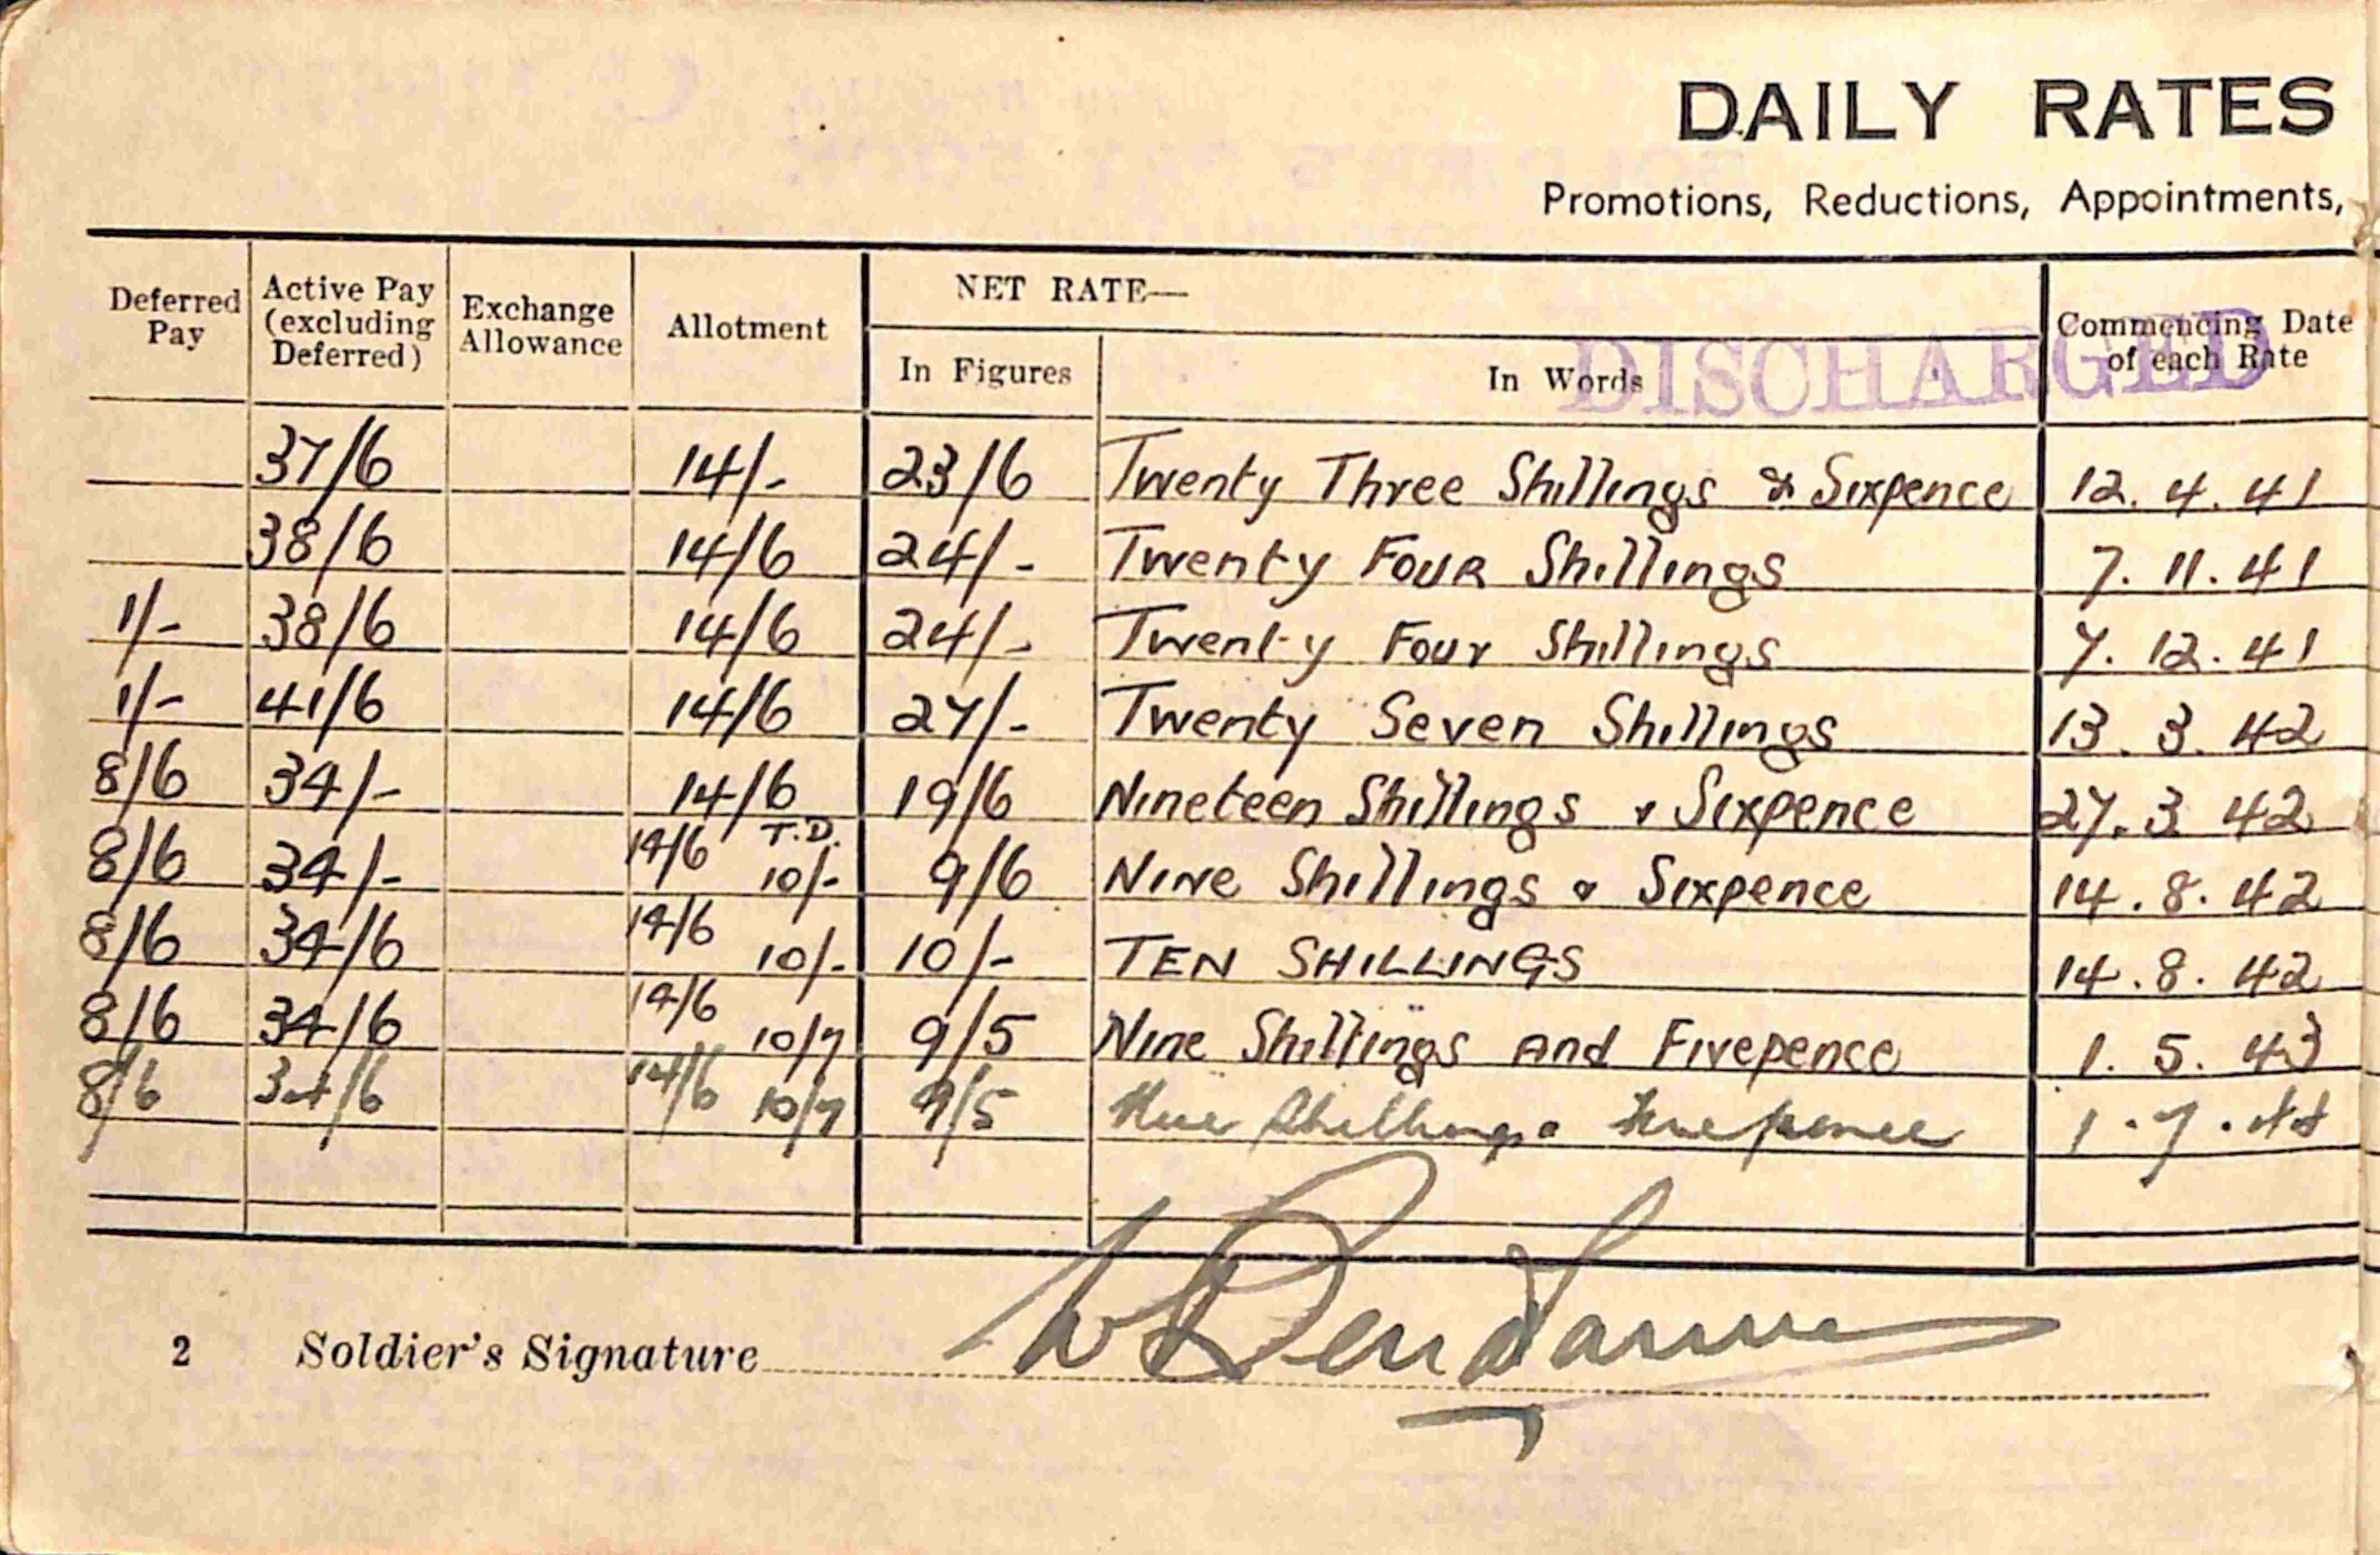 DAILY RATES
Promotions, Reductions, Appointments,
Deferred Pay Active Pay (excluding Deferred) Exchange Allowance Allotment NET RATE— In Figures In Words Commencing Date of each Rate
DISCHARGED
37/6 14/- 23/6 Twenty Three Shillings & Sixpence 12.4.41
38/6 14/6 24/- Twenty Four Shillings 7.11.41
1/- 38/6 14/6 24/- Twenty Four Shillings 7.12.41
1/- 41/6 14/6 27/- Twenty Seven Shillings 13.3.42
8/6 34/- 14/6 19/6 Nineteen Shillings & Sixpence 27.3.42
8/6 34/- 14/6 T.D. 10/- 9/6 Nine Shillings & Sixpence 14.8.42
8/6 34/6 14/6 10/- 10/- TEN SHILLINGS 14.8.42
8/6 34/6 14/6 10/7 9/5 Nine Shillings and Fivepence 1.5.43
8/6 34/6 14/6 10/7 9/5 Nine Shillings Fivepence 1.7.44
2 Soldier's Signature